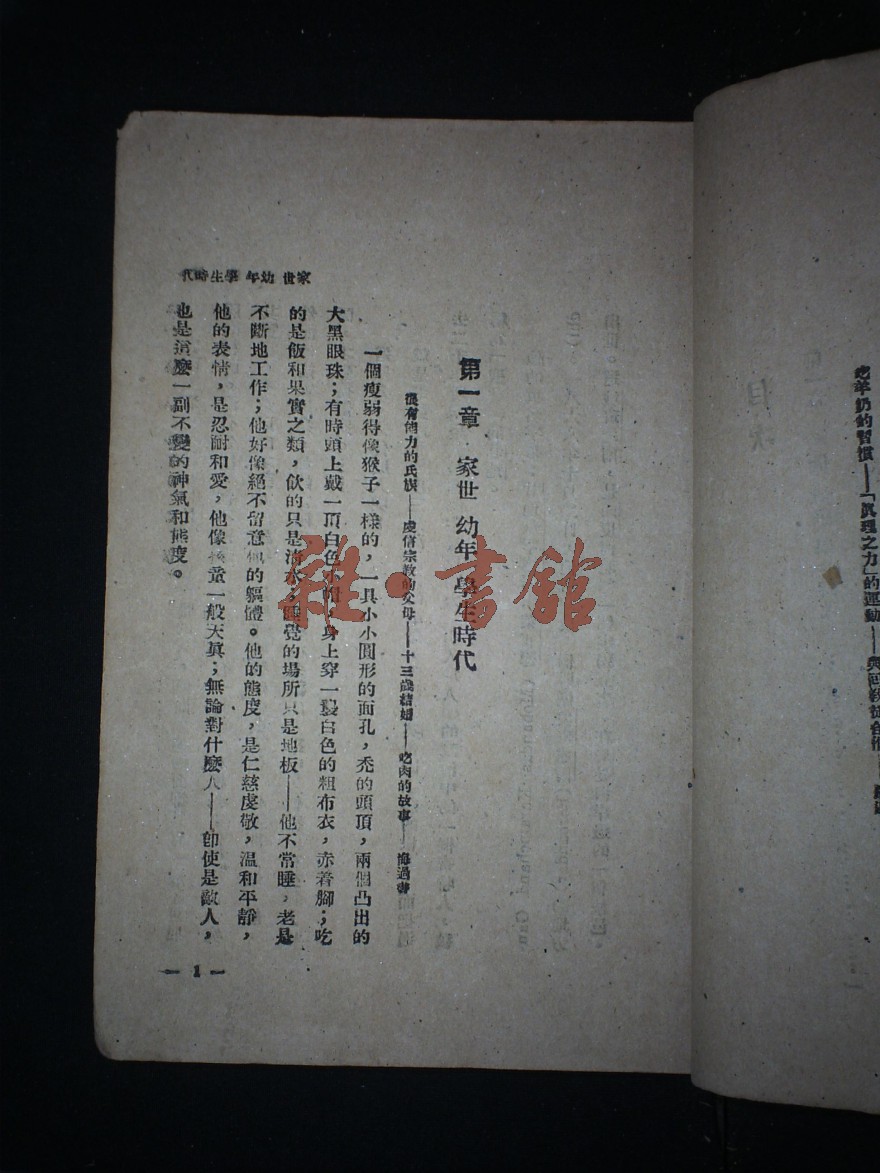 吃羊奶的習慣——「眞理之力」的運動——與回教徒合作
家世 幼年 學生時代
第一章 家世 幼年 學生時代
很有能力的氏族——虔信宗教的父母——十三歲結婚——吃肉的故事——悔過書
一個瘦弱得像猴子一樣的，一具小小圓形的面孔，禿的頭頂，兩個凸出的
大黑眼珠；有時頭上戴一頂白色小帽，身上穿一襲白色的粗布衣，赤着腳；吃
的是飯和果實之類，飲的只是清水，睡覺的場所只是地板——他不常睡，老是
不斷地工作；他好像絕不留意他的軀體。他的態度，是仁慈虔敬，溫和平靜，
他的表情，是忍耐和愛，他像孩童一般天眞；無論對什麼人——卽使是敵人，
也是這麼一副不變的神氣和態度。
— 1 —
雜·書館